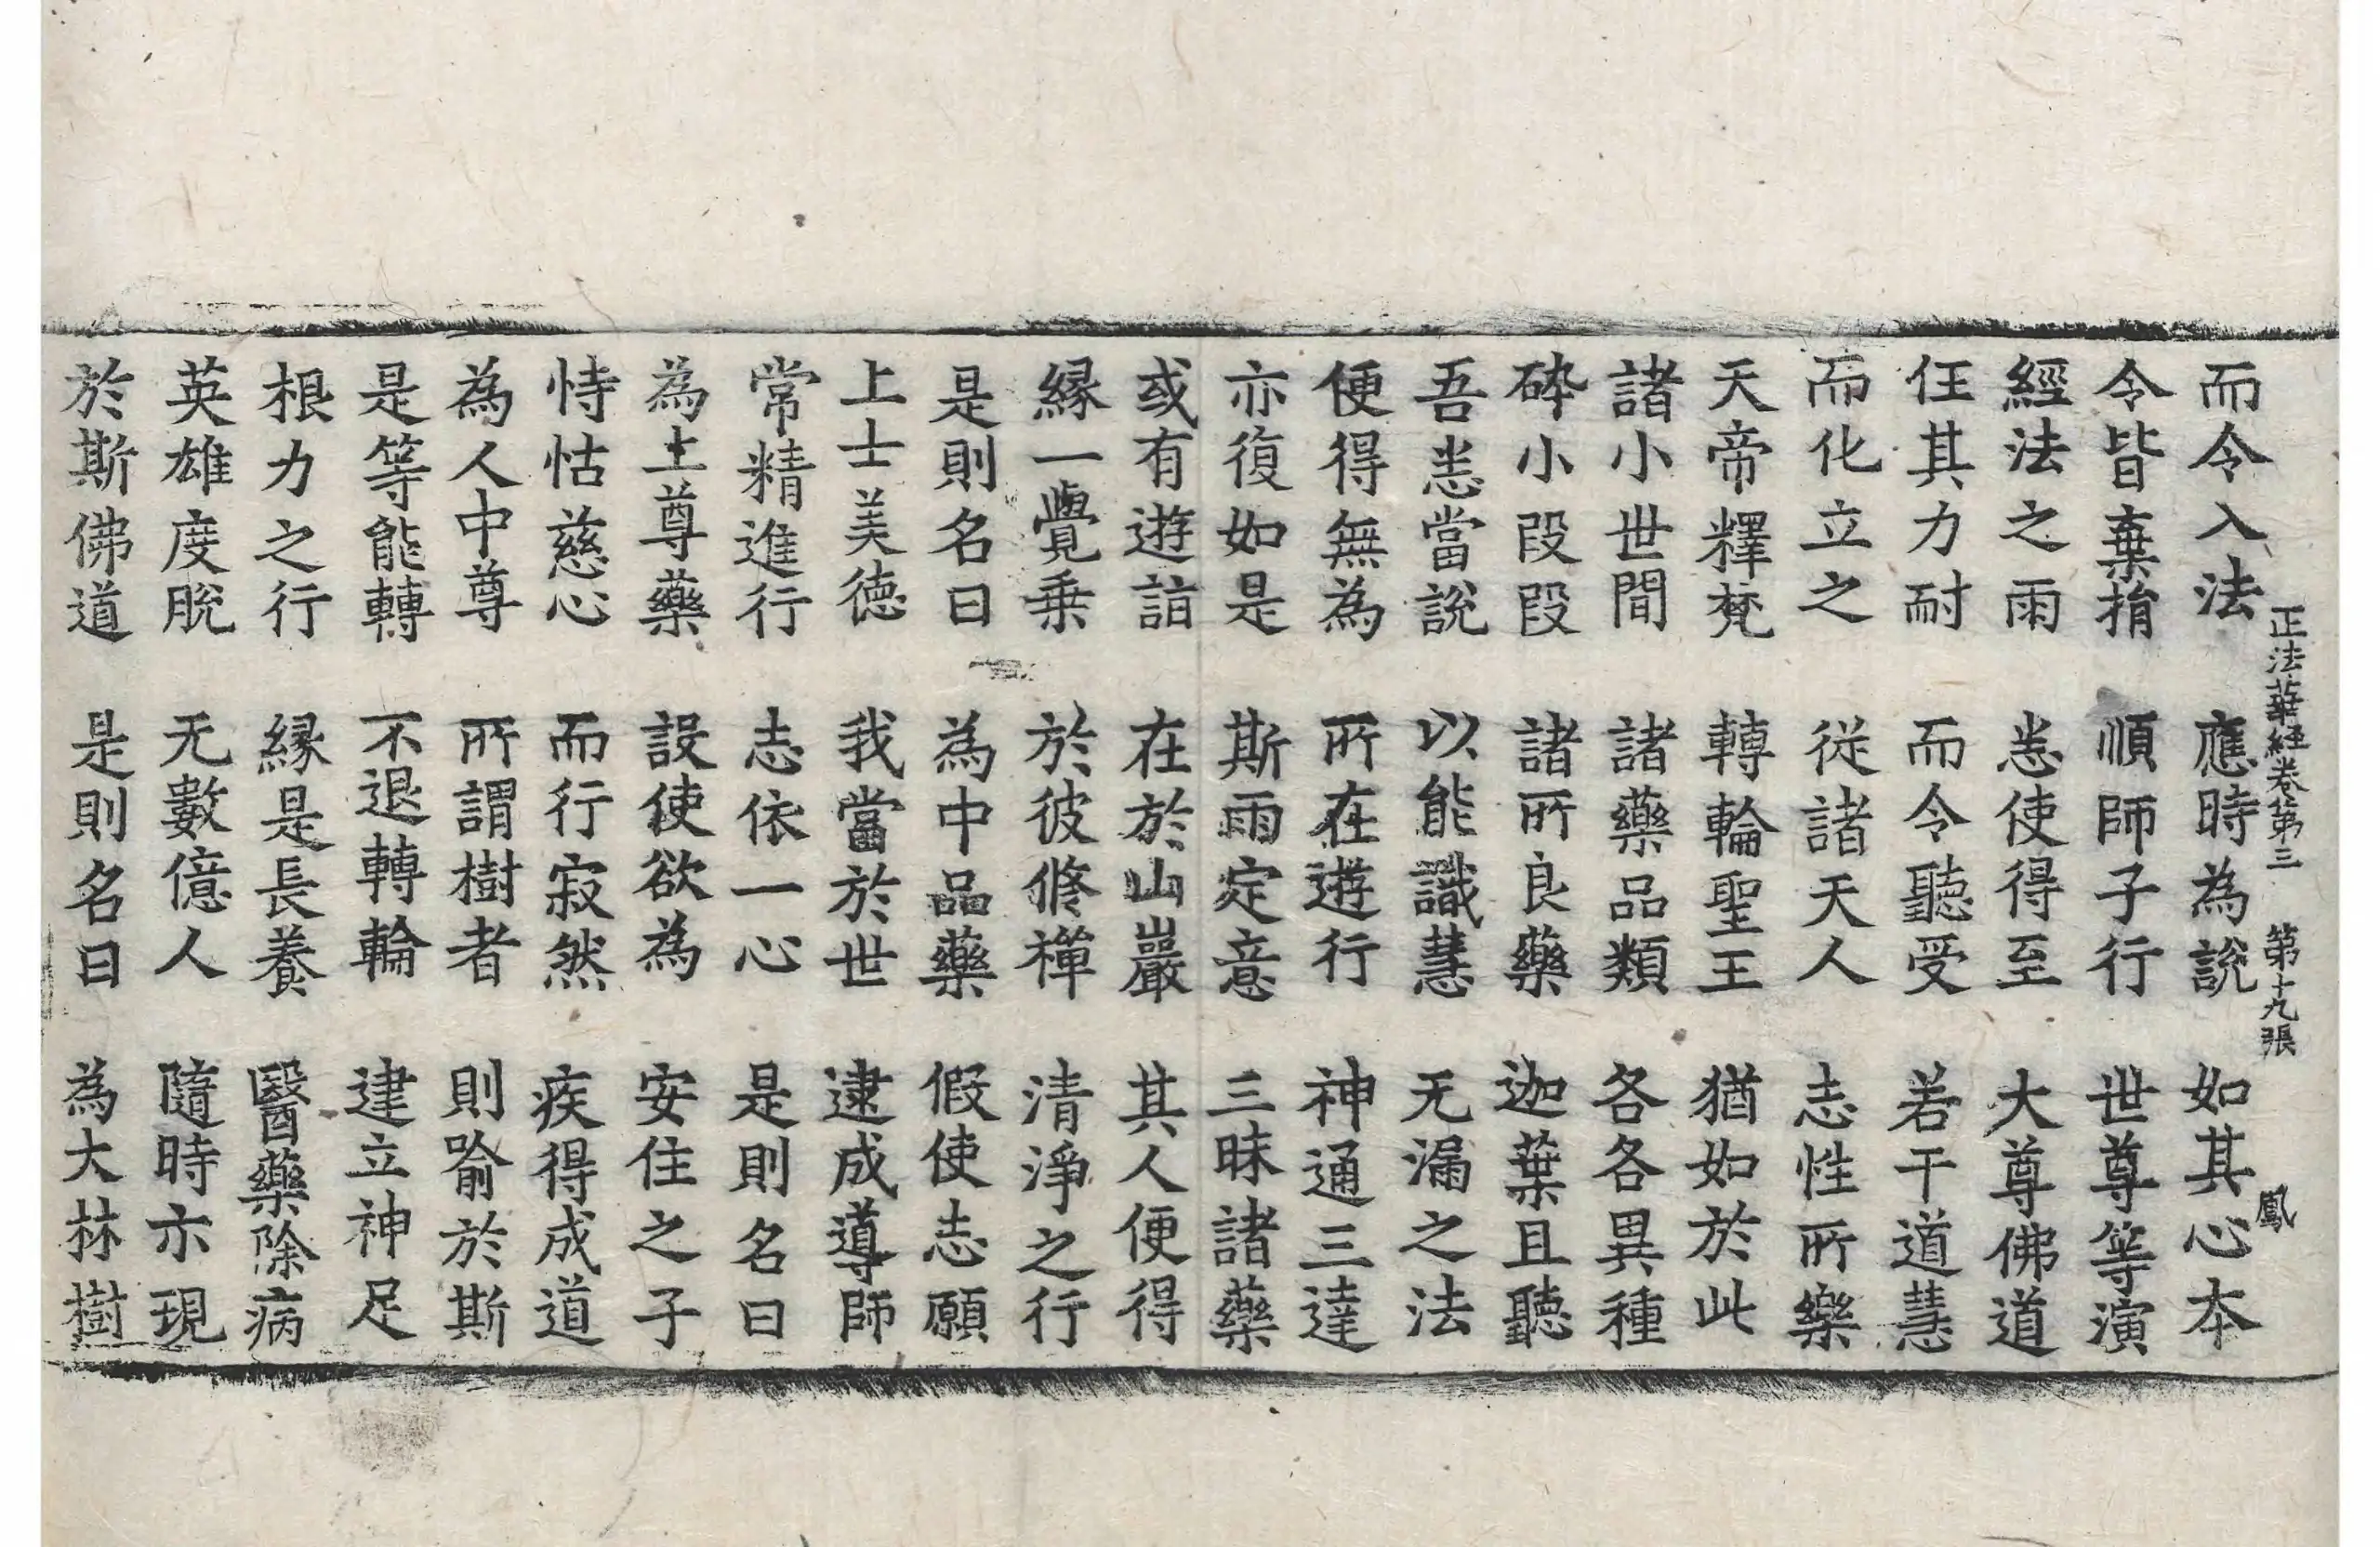 正法華經卷第三　第十九張　鳳
而令入法　應時為說　如其心本
令皆棄捐　順師子行　世尊等演
經法之雨　悉使得至　大尊佛道
任其力耐　而令聽受　若干道慧
而化立之　從諸天人　志性所樂
天帝釋梵　轉輪聖王　猶如於此
諸小世間　諸藥品類　各各異種
碎小段段　諸所良藥　迦葉且聽
吾悉當說　以能識慧　无漏之法
便得無為　所在遊行　神通三達
亦復如是　斯雨定意　三昧諸藥
或有遊詣　在於山巖　其人便得
緣一覺乘　於彼脩禪　清淨之行
是則名曰　為中品藥　假使志願
上士美德　我當於世　逮成導師
常精進行　志依一心　是則名曰
為上尊藥　設使欲為　安住之子
恃怙慈心　而行寂然　疾得成道
為人中尊　所謂樹者　則喻於斯
是等能轉　不退轉輪　建立神足
根力之行　緣是長養　醫藥除病
英雄度脫　无數億人　隨時示現
於斯佛道　是則名曰　為大林樹